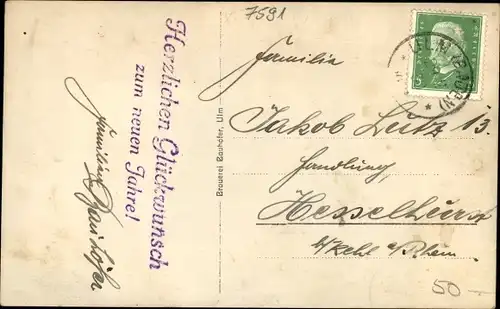 7591
Herzlichen Glückwunsch
zum neuen Jahre!
Familie
Bauhofer
Brauerei Bauhofer, Ulm
5
ULM (DONAU)
Familie
Jakob Lutz 13.
Handlung,
Hesselhurst
b/Kehl a/Rhein.
50 -